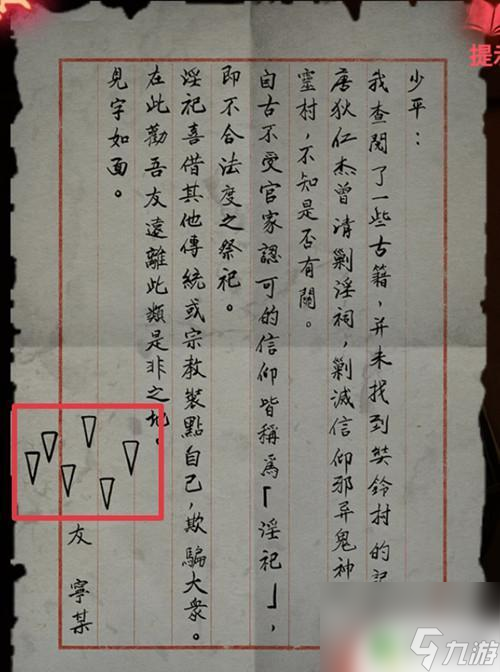 提示
少平：
我查閱了一些古籍，并未找到奘鈴村的記
唐狄仁杰曾清剿淫祠，剿滅信仰邪异鬼神
村，不知是否有關。
自古不受官家認可的信仰皆稱爲「淫祀」，
即不合法度之祭祀。
淫祀喜借其他傳統或宗教裝點自己，欺騙大衆。
在此勸吾友遠離此類是非之地。
見字如面。
友 寧某
九游